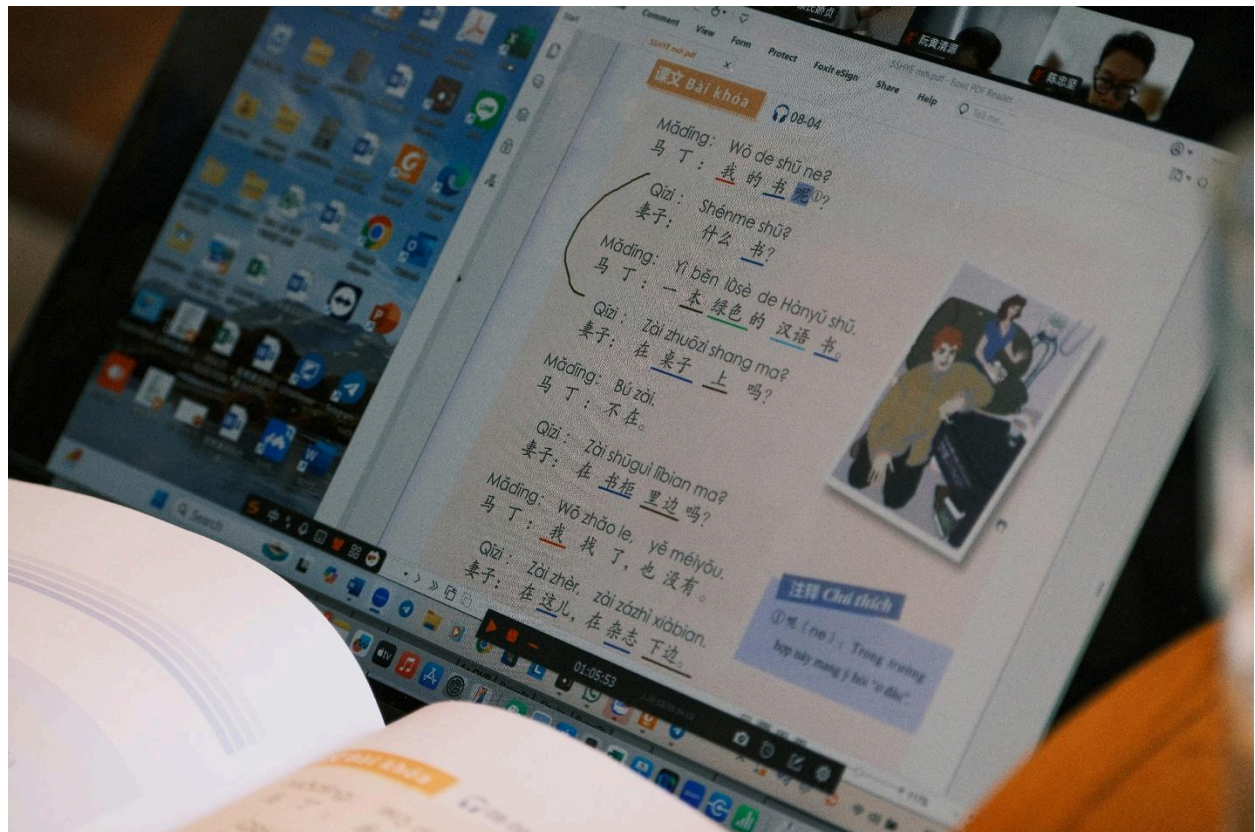 Start
Comment View Form Protect Foxit eSign Share Help Tell me...
SSHYE mới.pdf - Foxit PDF Reader
SSHYE mới.pdf
阮黄清源
陈忠坚
课文 Bài khóa 08-04
Mǎdīng: Wǒ de shū ne?
马丁：我的书呢①?
Qīzi: Shénme shū?
妻子：什么书?
Mǎdīng: Yì běn lǜsè de Hànyǔ shū.
马丁：一本绿色的汉语书。
Qīzi: Zài zhuōzi shang ma?
妻子：在桌子上吗?
Mǎdīng: Bú zài.
马丁：不在。
Qīzi: Zài shūguì lǐbian ma?
妻子：在书柜里边吗?
Mǎdīng: Wǒ zhǎo le, yě méiyǒu.
马丁：我找了，也没有。
Qīzi: Zài zhèr, zài zázhì xiàbian.
妻子：在这儿，在杂志下边。
注释 Chú thích
①呢 (ne): Trong trường
hợp này mang ý hỏi "ở đâu"
Search
中
01:05:53
Bài khóa